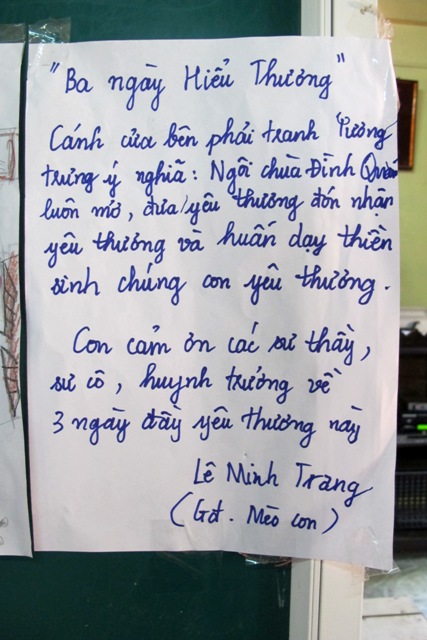 "Ba ngày Hiểu Thương"
Cánh cửa bên phải tranh Tượng
trưng ý nghĩa: Ngôi chùa Đình Quán
luôn mở, đưa yêu thương đón nhận
yêu thương và huấn dạy thiền
sinh chúng con yêu thương.
Con cảm ơn các sư thầy,
sư cô, huynh trưởng về
3 ngày đầy yêu thương này
Lê Minh Trang
(Gđ. Mèo con)